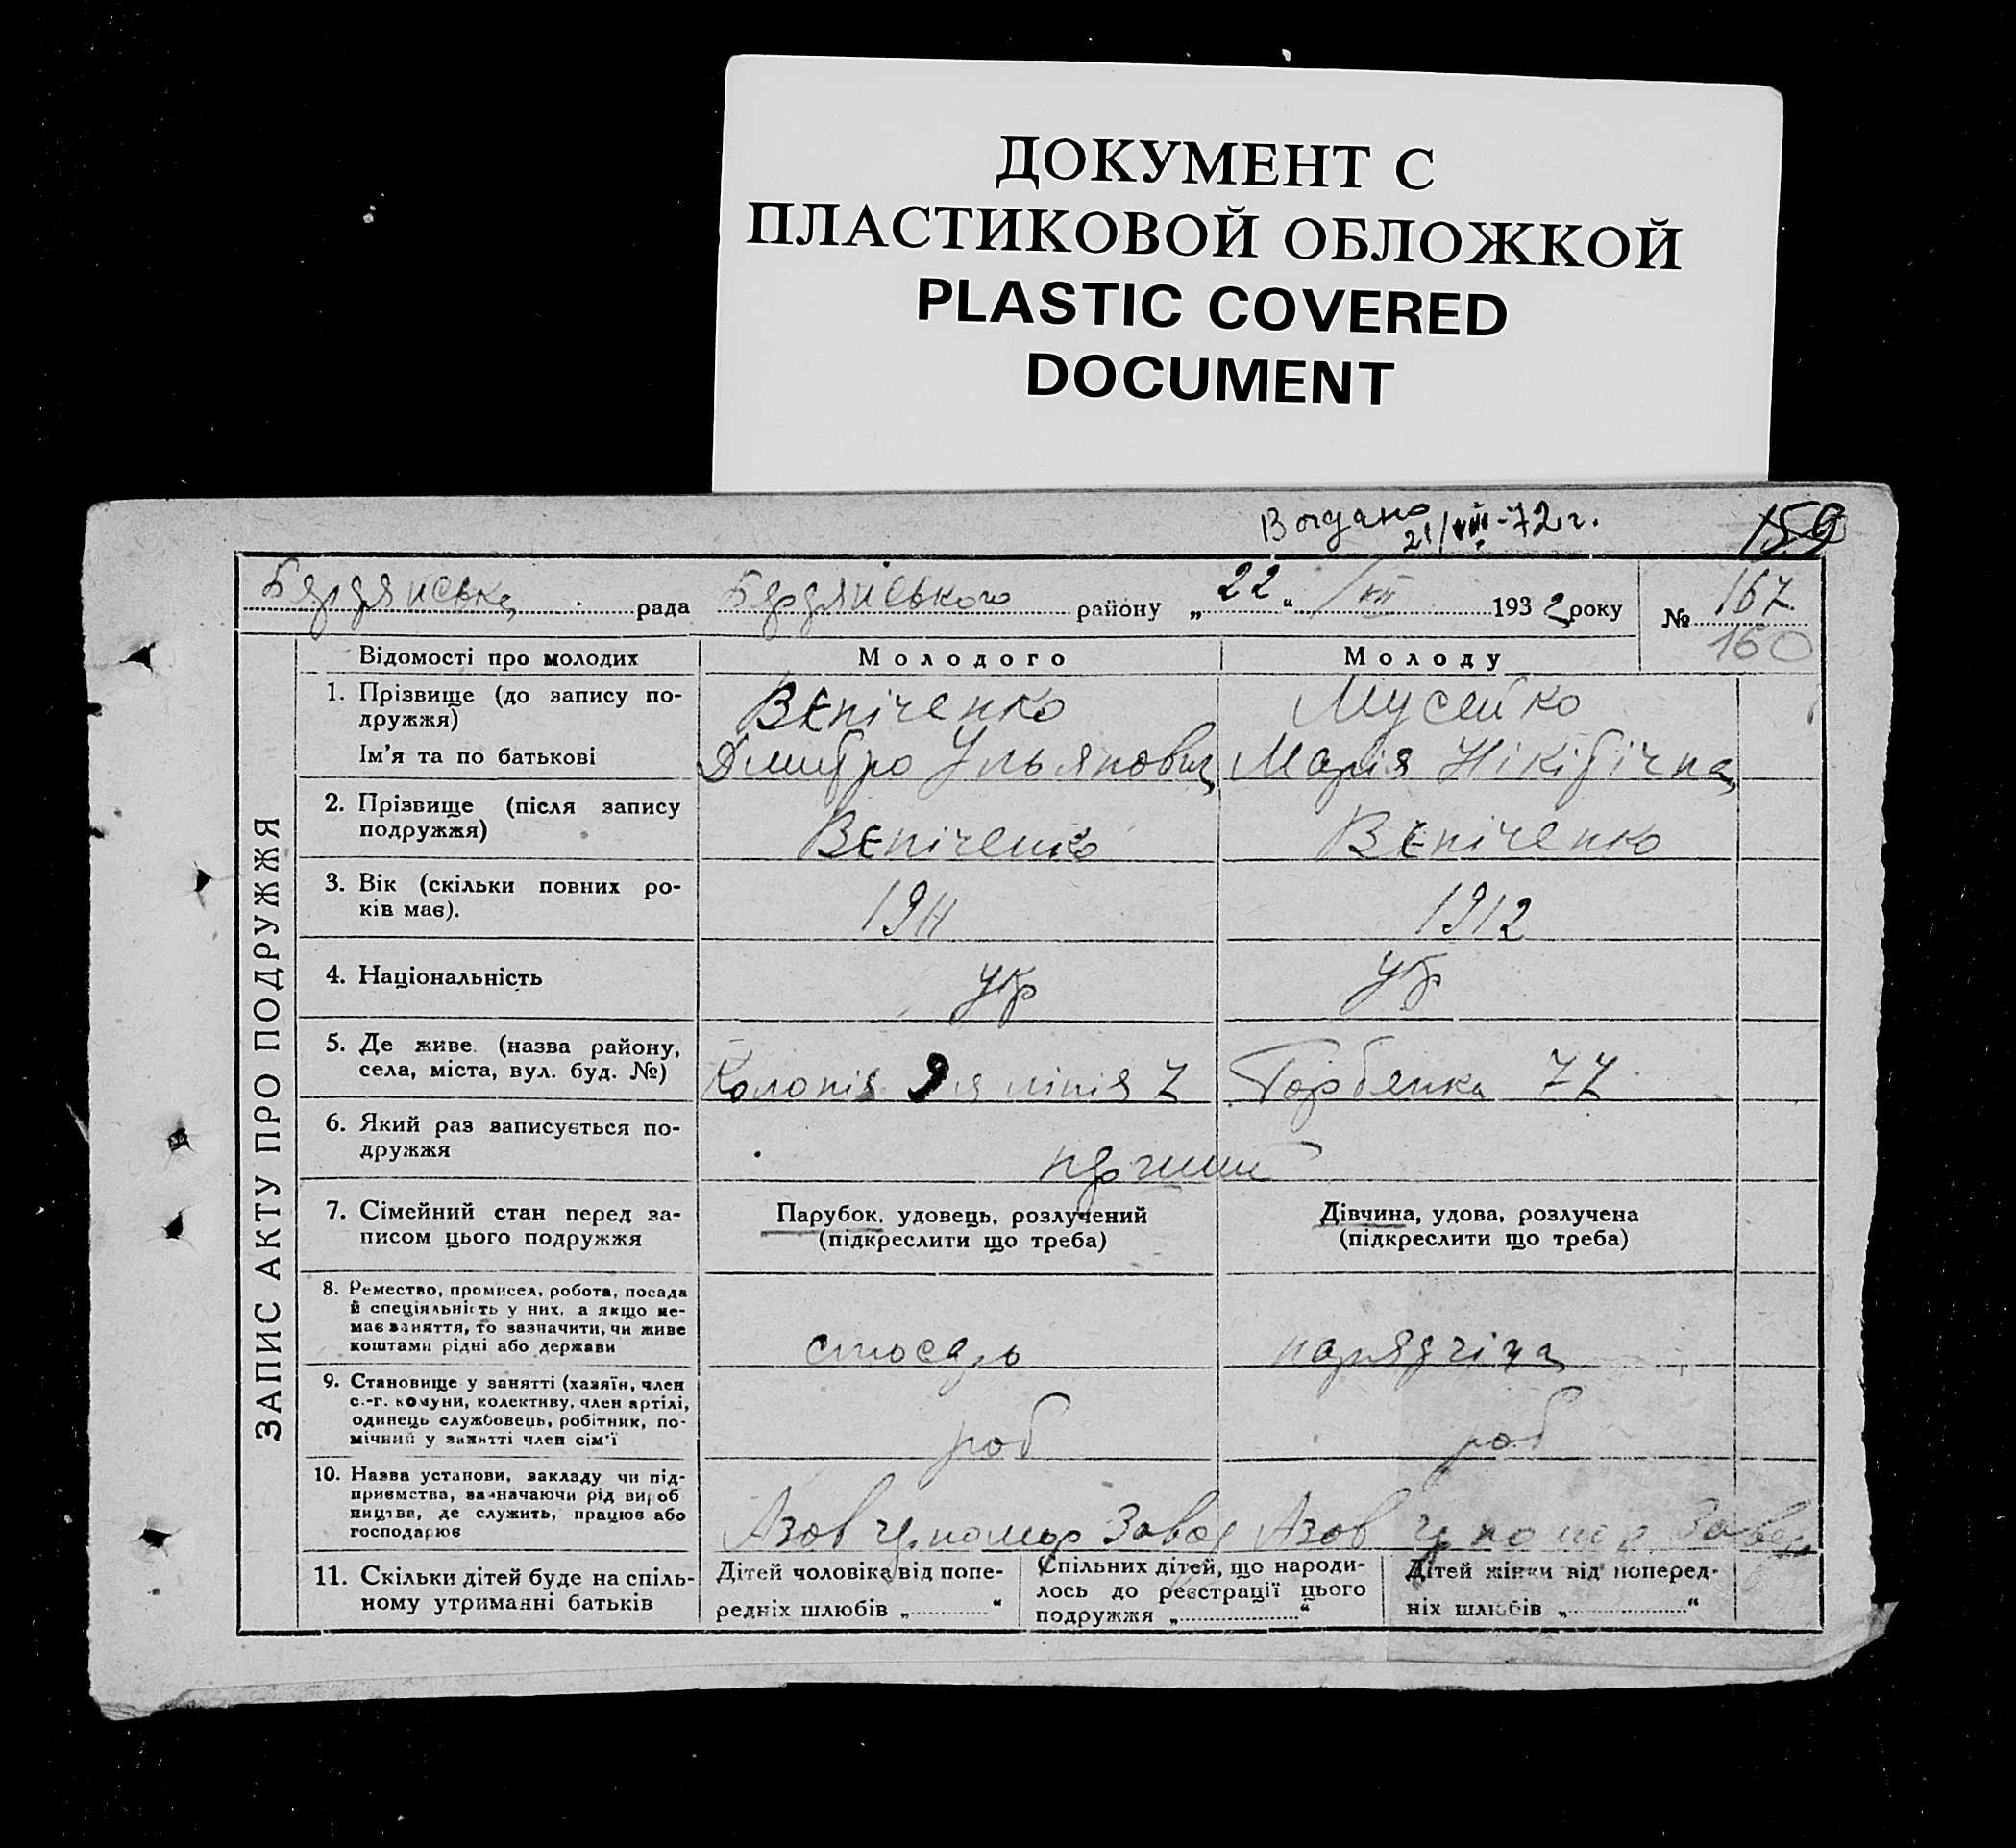 ДОКУМЕНТ С
ПЛАСТИКОВОЙ ОБЛОЖКОЙ
PLASTIC COVERED
DOCUMENT
21/VIII-72 г.
159
Бердянська рада Бердянського району „22“ /VII 1932 року № 167
160
ЗАПИС АКТУ ПРО ПОДРУЖЖЯ
Відомості про молодих Молодого Молоду
1. Прізвище (до запису по-
дружжя) Вєніченко Мусейко
Ім'я та по батькові Дмитро Ульянович Марія Нікітічна
2. Прізвище (після запису
подружжя) Вєніченко Вєніченко
3. Вік (скільки повних ро-
ків має). 1911 1912
4. Національність укр укр
5. Де живе (назва району,
села, міста, вул. буд. №) Колонія 9 я лінія 7 Горбенка 77
6. Який раз записується по-
дружжя перший
7. Сімейний стан перед за-
писом цього подружжя
Парубок, удовець, розлучений
(підкреслити що треба)
Дівчина, удова, розлучена
(підкреслити що треба)
8. Ремество, промисел, робота, посада
й спеціяльність у них, а якщо не-
має заняття, то зазначити, чи живе
коштами рідні або держави слюсарь нарядчіца
9. Становище у занятті (хазяїн, член
с.-г. комуни, колективу, член артілі,
одинець службовець, робітник, по-
мічний у занятті член сім'ї роб роб
10. Назва установи, закладу чи під-
приємства, зазначаючи рід вироб
ництва, де служить, працює або
господарює Азов Чорномор Завод Азов Чорномор Завод
11. Скільки дітей буде на спіль-
ному утриманні батьків
Дітей чоловіка від попе-
редніх шлюбів „ “
Спільних дітей, що народи-
лось до реєстрації цього
подружжя „ “
Дітей жінки від поперед-
ніх шлюбів „ “